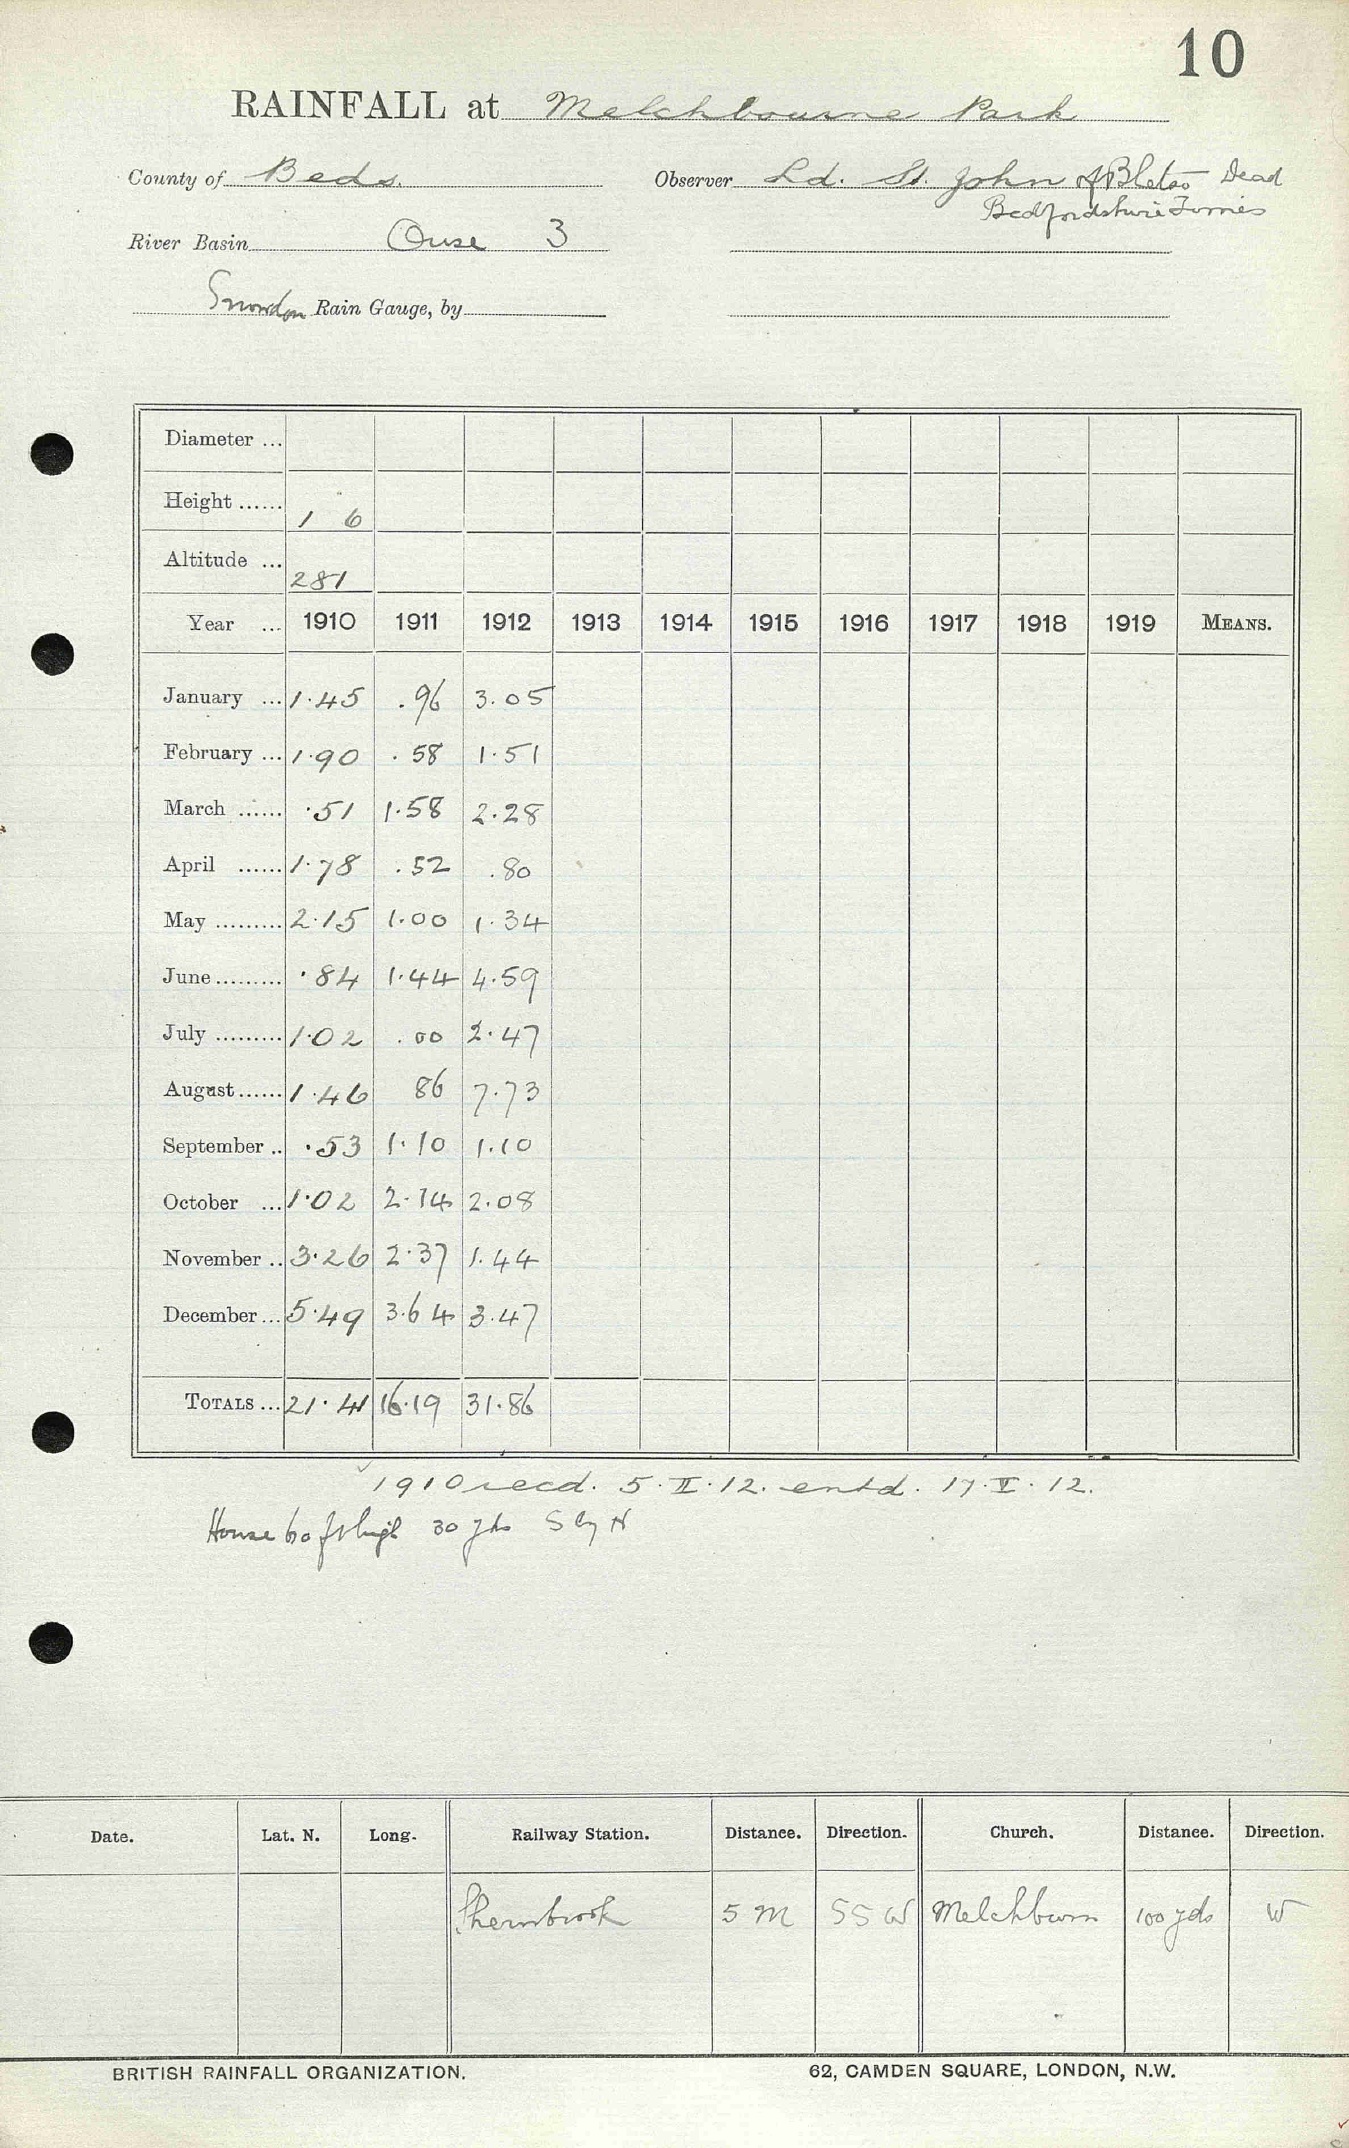 10
RAINFALL at Melchbourne Park
County of Beds. Observer Ld. St. John of Bletso Dead
Bedfordshire Times
River Basin Ouse 3
Snowdon Rain Gauge, by
Diameter ...
Height ...... 1 6
Altitude ... 281
Year ... 1910 1911 1912 1913 1914 1915 1916 1917 1918 1919 MEANS.
January ... 1.45 .96 3.05
February ... 1.90 .58 1.51
March ...... .51 1.58 2.28
April ...... 1.78 .52 .80
May ......... 2.15 1.00 1.34
June ......... .84 1.44 4.59
July ......... 1.02 .00 2.47
August ...... 1.46 86 7.73
September .. .53 1.10 1.10
October ... 1.02 2.14 2.08
November .. 3.26 2.37 1.44
December ... 5.49 3.64 3.47
TOTALS ... 21.41 16.19 31.86
1910 recd. 5.II.12. entd. 17.V.12.
House 60 ft high 30 yds S by
Date. Lat. N. Long. Railway Station. Distance. Direction. Church. Distance. Direction.
Shernbrook 5 M SSW Melchburn 100 yds W
BRITISH RAINFALL ORGANIZATION. 62, CAMDEN SQUARE, LONDON, N.W.